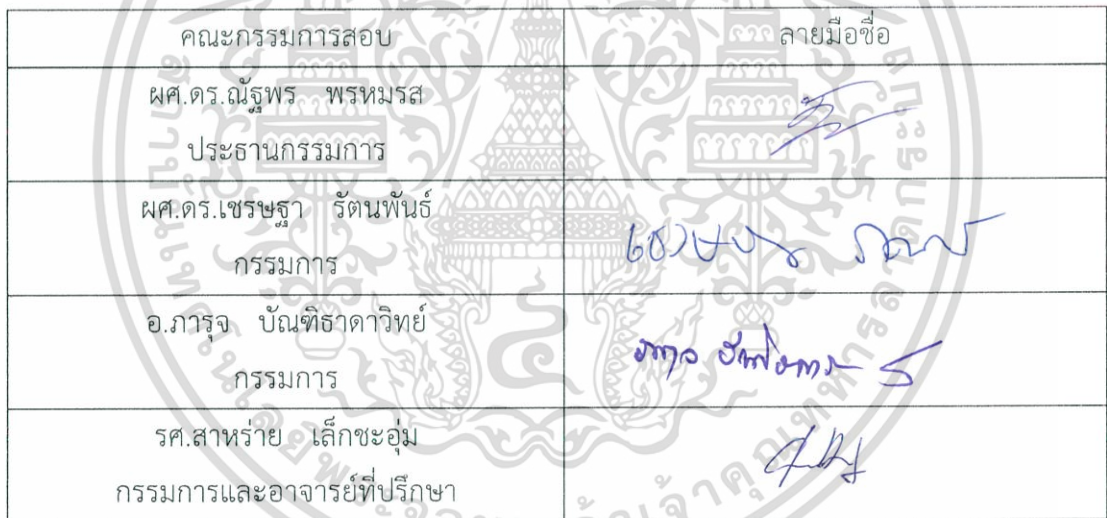 คณะกรรมการสอบ ลายมือชื่อ
ผศ.ดร.ณัฐพร พรหมรส
ประธานกรรมการ
ผศ.ดร.เชรษฐา รัตนพันธ์
กรรมการ
อ.ภารุจ บัณฑิธาดาวิทย์
กรรมการ
รศ.สาหร่าย เล็กชะอุ่ม
กรรมการและอาจารย์ที่ปรึกษา